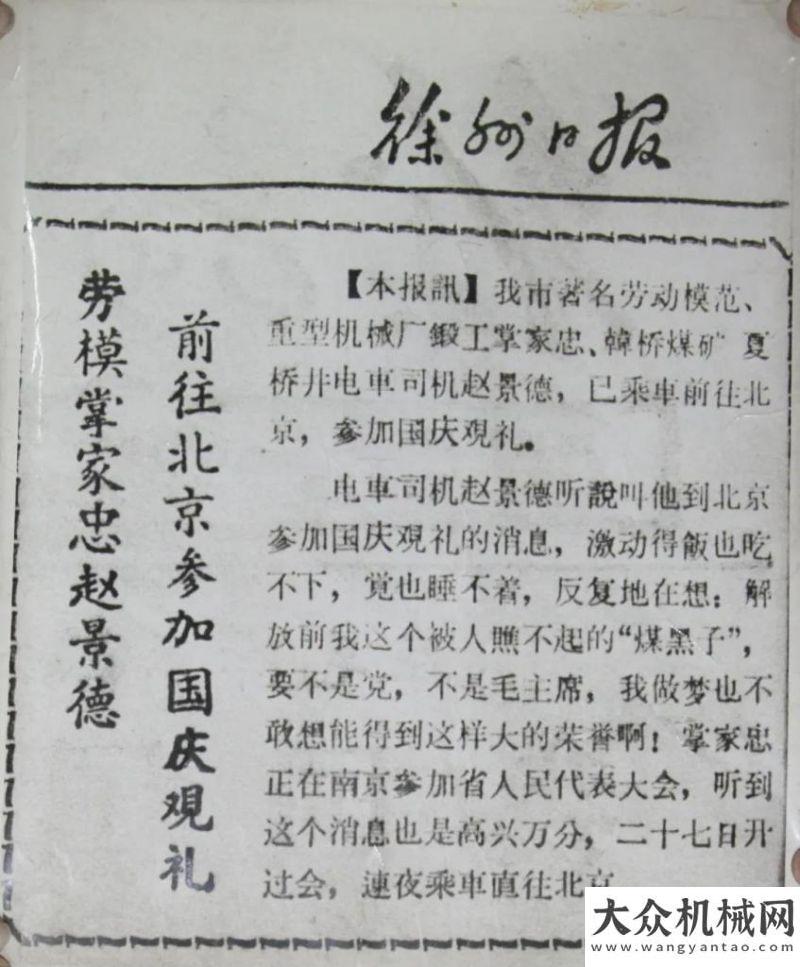 徐州日报
劳模掌家忠赵景德
前往北京参加国庆观礼
【本报訊】我市著名劳动模范、
重型机械厂鍛工掌家忠、韓桥煤矿夏
桥井电車司机赵景德，已乘車前往北
京，参加国庆观礼。
电車司机赵景德听說叫他到北京
参加国庆观礼的消息，激动得飯也吃
不下，覚也睡不着，反复地在想：解
放前我这个被人瞧不起的“煤黑子”，
要不是党，不是毛主席，我做梦也不
敢想能得到这样大的荣誉啊！掌家忠
正在南京参加省人民代表大会，听到
这个消息也是高兴万分，二十七日开
过会，連夜乘車直往北京
大众机械网
www.wangyantao.com